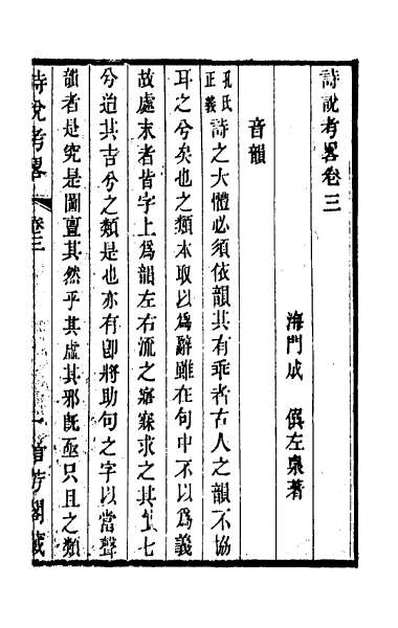 詩說考畧卷三
海門成僎左泉著
音韻
孔氏正義詩之大體必須依韻其有乖者古人之韻不協
耳之兮矣也之類本取以爲辭雖在句中不以爲義
故處末者皆字上爲韻左右流之寤寐求之其實七
兮迨其吉兮之類是也亦有卽將助句之字以當聲
韻者是究是圖亶其然乎其虛其邪旣亟只且之類
詩說考畧 卷三 一